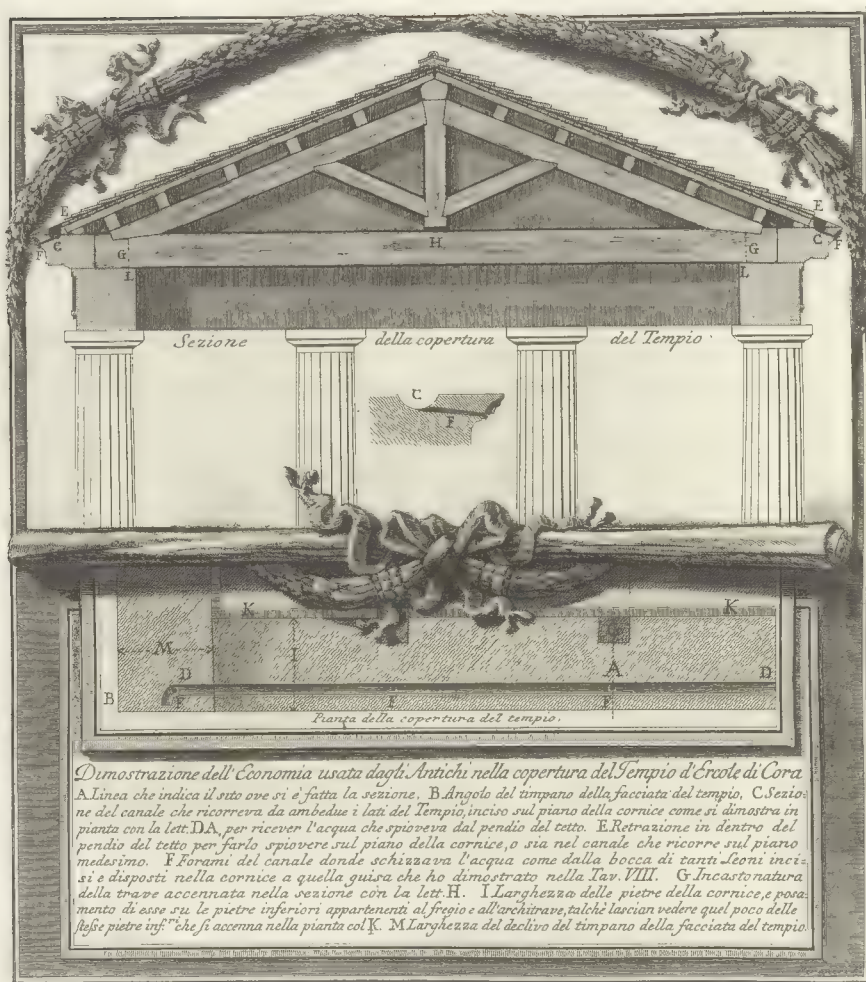 E
E
C
C
F
F
G
H
G
I
L
Sezione della copertura del Tempio
C
F
K
K
M
I
A
D
D
B
F
I
F
Pianta della copertura del tempio.
Dimostrazione dell'Economia usata dagli Antichi nella copertura del Tempio d'Ercole di Cora
A Linea che indica il sito ove si è fatta la sezione. B Angolo del timpano della facciata del tempio. C Sezio=
ne del canale che ricorreva da ambedue i lati del Tempio, inciso sul piano della cornice come si dimostra in
pianta con la lett. DA, per ricever l'acqua che spioveva dal pendio del tetto. E Retrazione in dentro del
pendio del tetto per farlo spiovere sul piano della cornice, o sia nel canale che ricorre sul piano
medesimo. F Forami del canale donde schizzava l'acqua come dalla bocca di tanti Leoni inci=
si e disposti nella cornice a quella guisa che ho dimostrato nella Tav. VIIII. G Incastonatura
della trave accennata nella sezione con la lett. H. I Larghezza delle pietre della cornice, e posa=
mento di esse su le pietre inferiori appartenenti al fregio e all'architrave, talchè lascian vedere quel poco delle
stesse pietre inf.ri che si accenna nella pianta col K. M Larghezza del declivo del timpano della facciata del tempio.